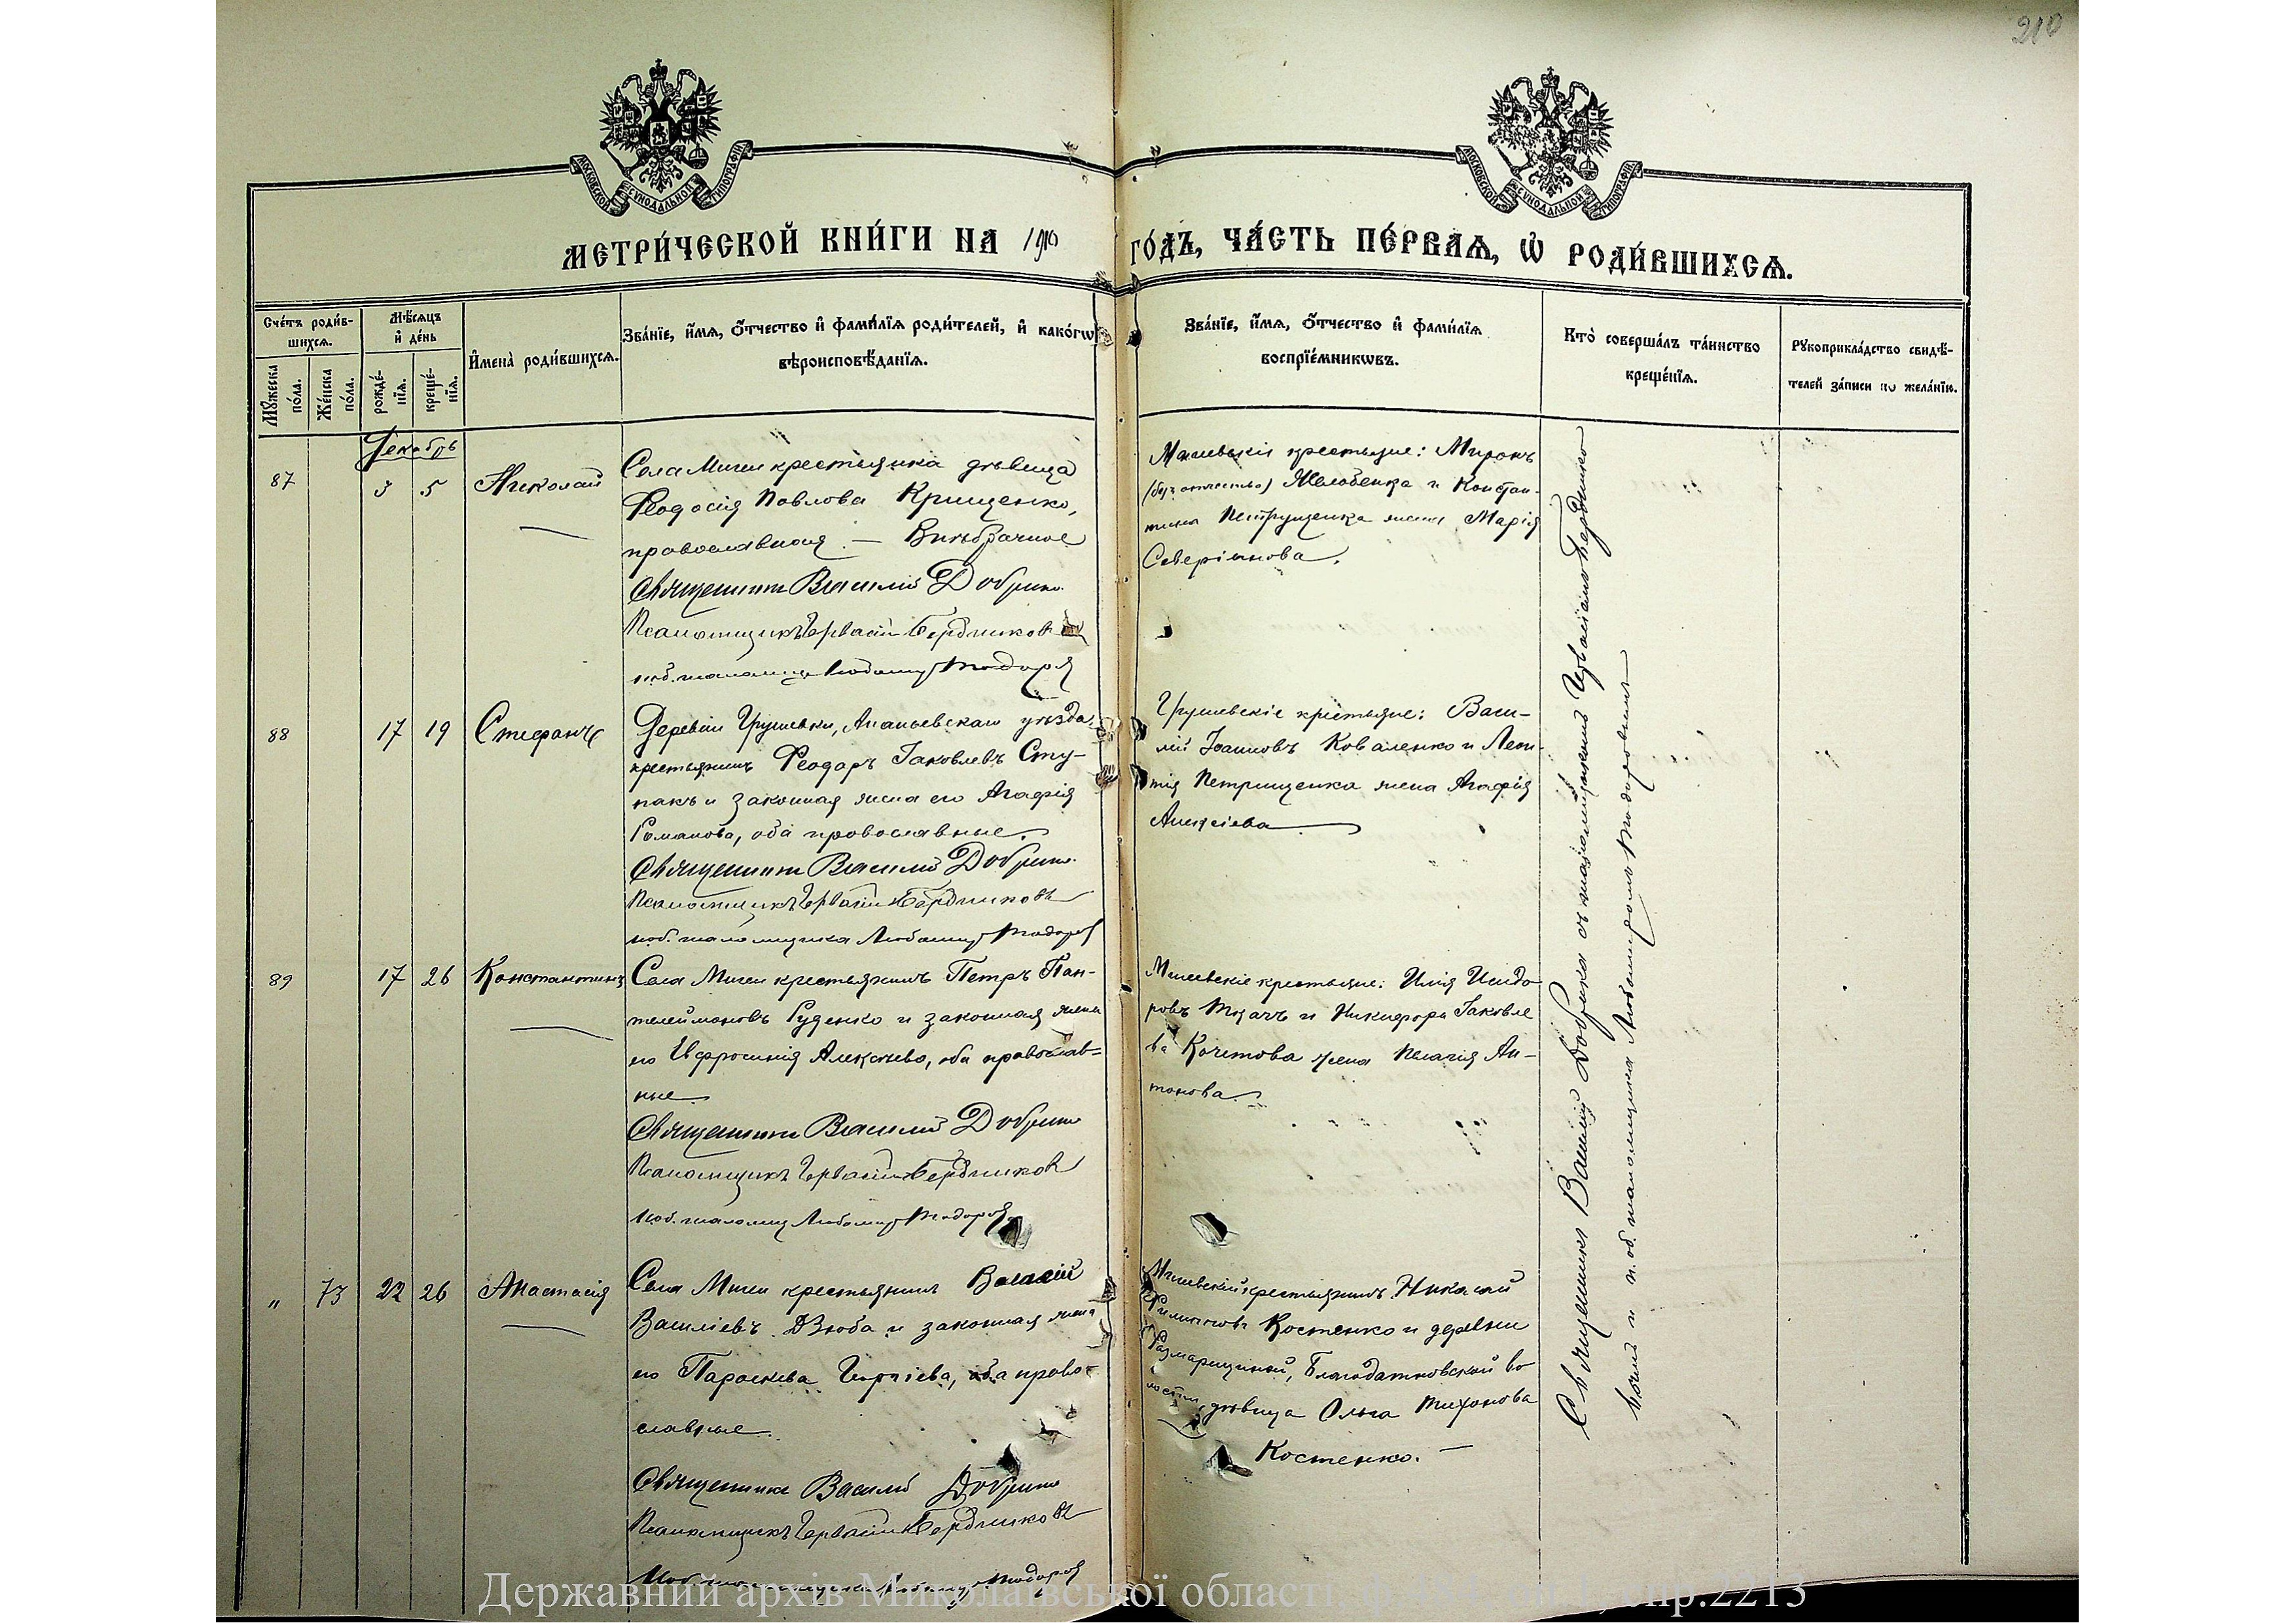 210
МОСКОВСКОЙ СУНОДАЛЬНОЙ ТИПОГРАФІИ
МОСКОВСКОЙ СУНОДАЛЬНОЙ ТИПОГРАФІИ
МЕТРИ́ЧЕСКОЙ КНИ́ГИ НА 1910 ГО́ДЪ, ЧА́СТЬ ПЕ́РВАЯ, Ѡ҆ РОДИ́ВШИХСЯ.
Сче́тъ роди́в-
шихся.
Мꙋ́жеска по́ла.
Же́нска по́ла.
Мѣ́сяцъ и҆ де́нь
рожде́-нїя.
креще́-нїя.
И҆мена̀ роди́вшихся.
Зва́нїе, и҆́мя, ѻ҆́тчество и҆ фами́лїя роди́телей, и҆ како́гѡ
вѣроисповѣ́данїя.
Зва́нїе, и҆́мя, ѻ҆́тчество и҆ фами́лїя
воспрїе́мникѡвъ.
Кто̀ соверша́лъ та́инство
креще́нїя.
Рꙋкоприкла́дство свидѣ́-
телей за́писи по жела́нїю.
Декабрь
87 3 5 Николай
Села Мигеи крестьянка дѣвица
Ѳеодосія Павлова Крищенко,
православная. — Внѣбрачное
Священникъ Василій Добрин
Псаломщикъ Герваcій Бердниковъ
и об. псаломщ Любомиръ Тодоров
Мигевскіе крестьяне: Миронъ
(безъ отчества) Желобенка и Констан-
тина Петрущенка жена Марія
Северіанова.
88 17 19 Стефанъ
Деревни Грушевки, Ананьевскаго уѣзда,
крестьянинъ Ѳеодоръ Іаковлевъ Сту-
пакъ и законная жена его Агафія
Романова, оба православные.
Священникъ Василій Добрин
Псаломщикъ Герваcій Бердниковъ
и об. псаломщика Любомиръ Тодоров
Грушевскіе крестьяне: Васи-
лій Іоанновъ Коваленко и Леон-
тія Петрищенка жена Агафія
Алексіева
89 17 26 Константинъ
Села Мигеи крестьянинъ Петръ Пан-
телеймоновъ Руденко и законная жена
его Евфросинія Алексіева, оба православ-
ные.
Священникъ Василій Добрин
Псаломщикъ Герваcій Бердников
и об. псаломщ Любомиръ Тодоров
Мигевскіе крестьяне: Илія Исидо-
ровъ Ткачъ и Никифора Іаковле
ва Кочетова жена Пелагія Ан-
тонова.
" 73 22 26 Анастасія
Села Мигеи крестьянинъ Василій
Василіевъ Дзюба и законная жена
его Параскева Георгіева, оба право-
славные.
Священникъ Василій Добрин
Псаломщикъ Герваcій Бердниковъ
и об. псаломщика Любомиръ Тодоров
Мигевскій крестьянинъ Николай
Филипповъ Костенко и деревни
Размарициной, Благодатновской во
лости, дѣвица Ольга Тихонова
Костенко. —
Священникъ Василій Добрин съ псаломщикомъ Герваcіемъ Бердников-
вымъ и и. об. псаломщика Любомиромъ Тодоровымъ
Державний архів Миколаївської області, спр.2213